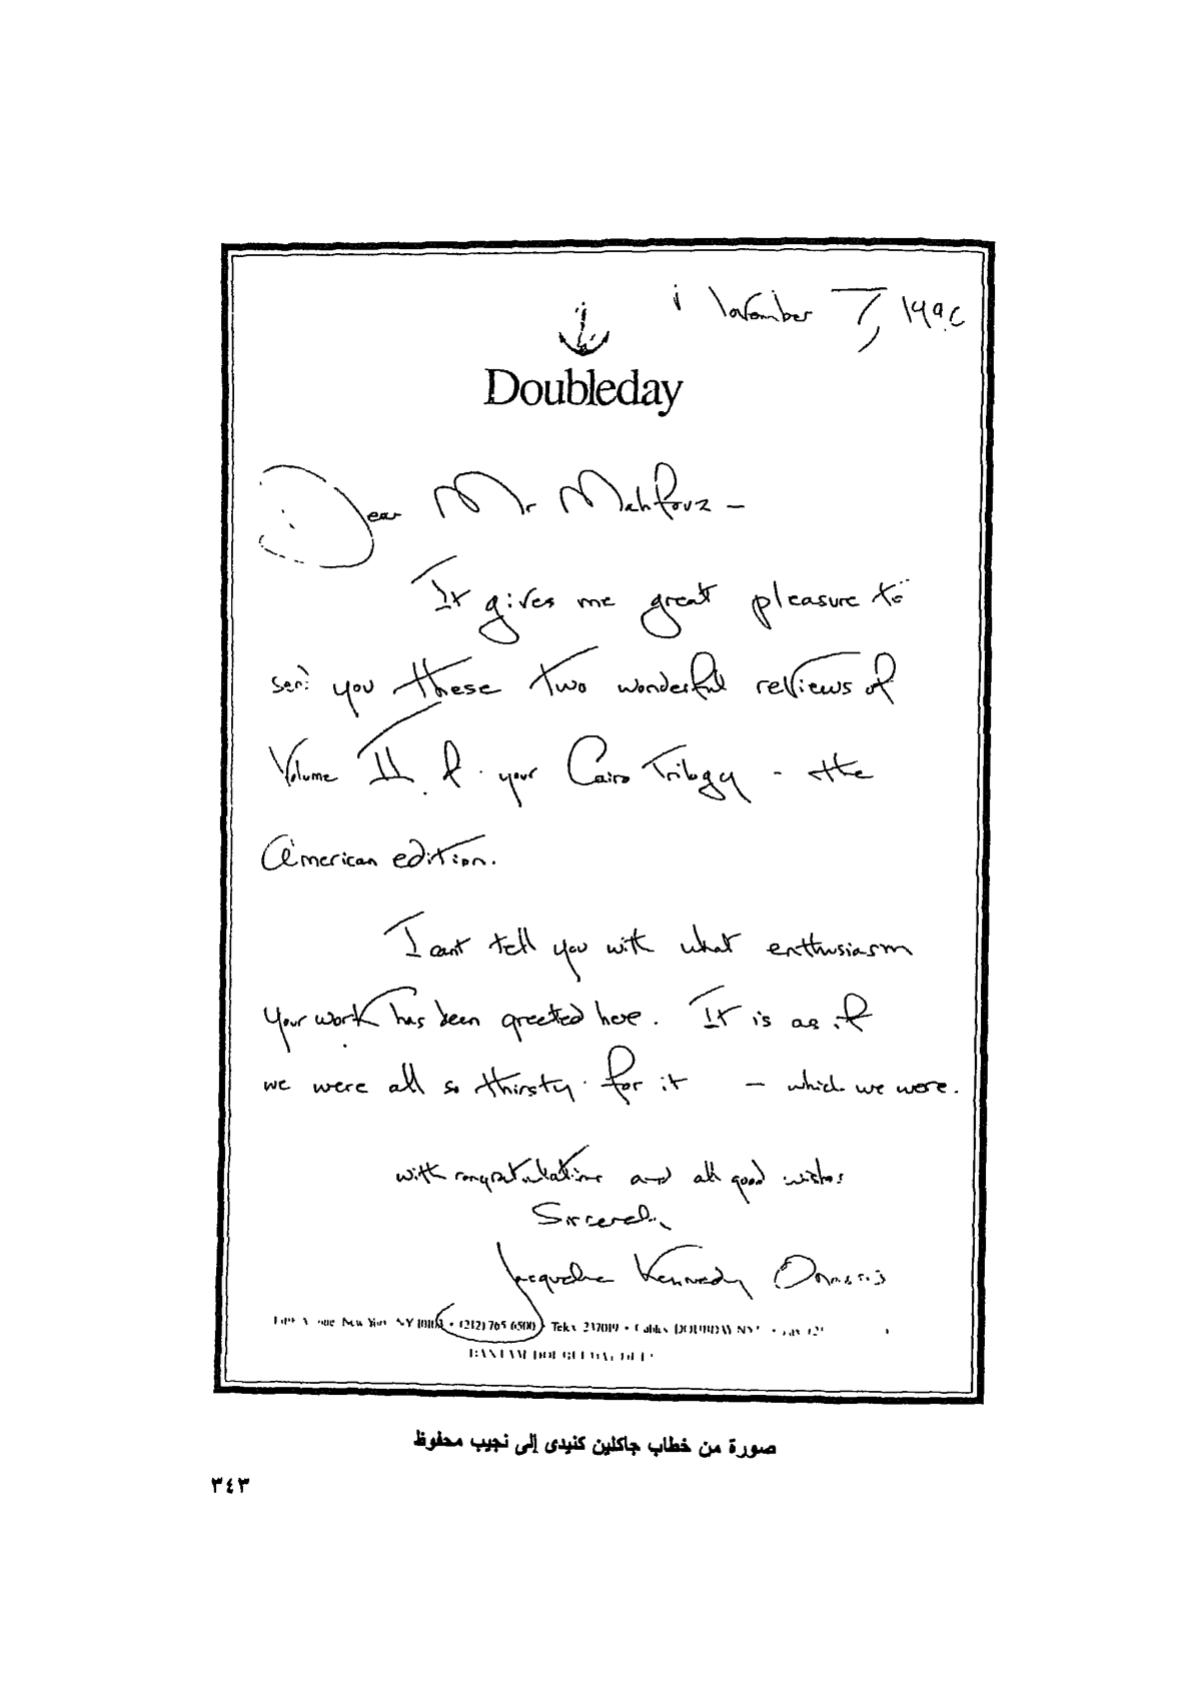 November 7, 199
Doubleday
Dear Mr Mahfouz –
It gives me great pleasure to
send you these two wonderful reviews of
Volume II of your Cairo Trilogy - the
American edition.
I cant tell you with what enthusiasm
your work has been greeted here. It is as if
we were all so thirsty for it – which we were.
with congratulations and all good wishes
Sincerely,
Jacqueline Kennedy Onassis
New York NY • (212) 765 6500 • Telex 237019 • Cables
صورة من خطاب جاكلين كنيدى إلى نجيب محفوظ
٣٤٣